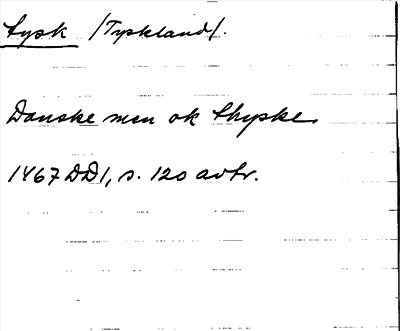 tysk /Tyskland/.
Danske men ok thyske.
1467 DD1, s. 120 avtr.